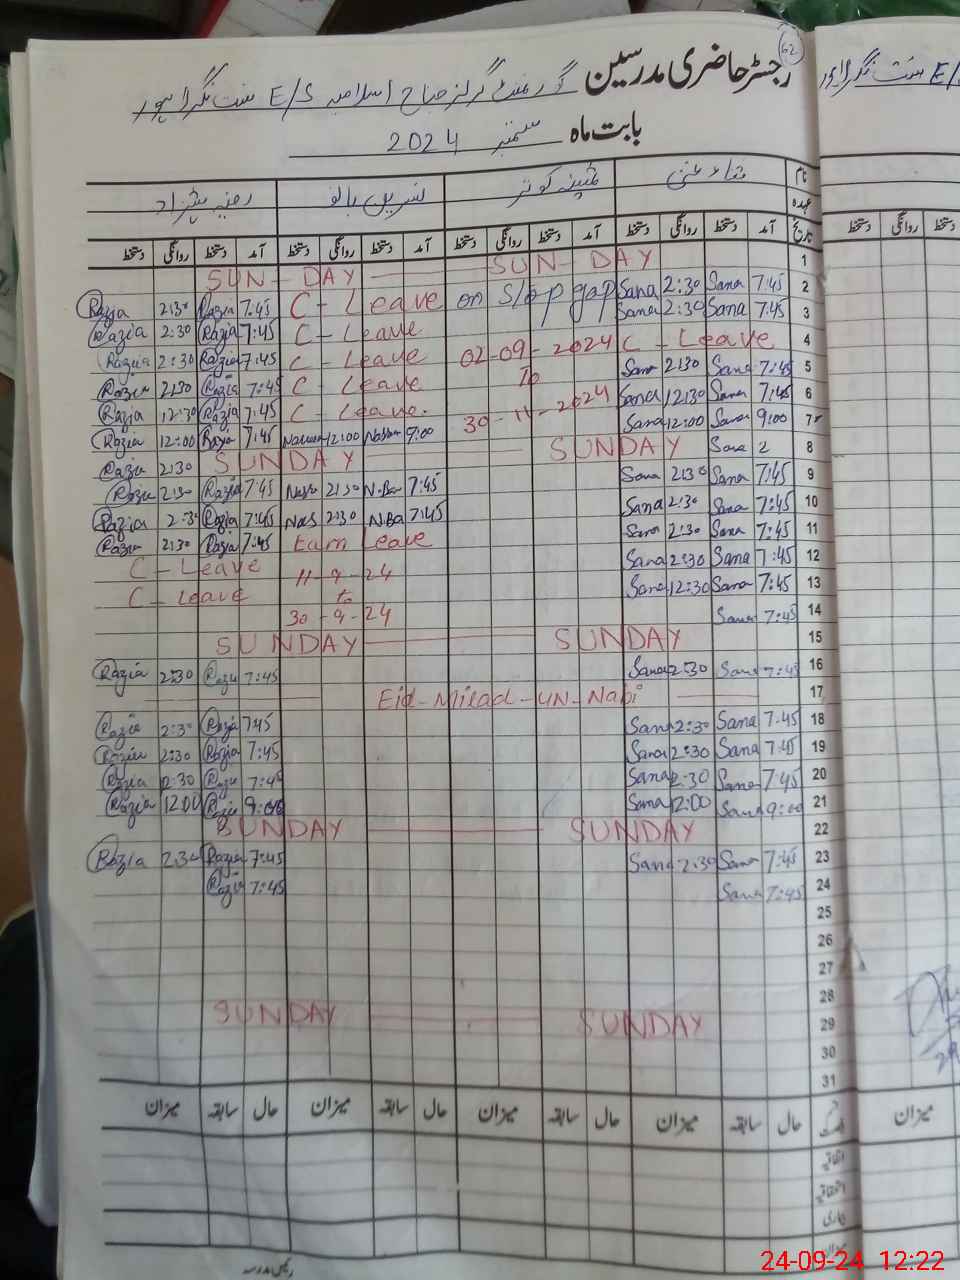 62
رجسٹر حاضری مدرسین گورنمنٹ گرلز اسلامیہ E/S سنت نگر لاہور
بابت ماہ ستمبر 2024
نام ثناء غنی کوثر نسرین بانو رضیہ شہزاد
عہدہ
تاریخ آمد دستخط روانگی دستخط آمد دستخط روانگی دستخط آمد دستخط روانگی دستخط آمد دستخط روانگی دستخط
1 SUN-DAY SUN-DAY
Razia 2:30 Razia 7:45 C-Leave on Stop gap Sana 2:30 Sana 7:45 2
Razia 2:30 Razia 7:45 C-Leave Sana 2:30 Sana 7:45 3
Razia 2:30 Razia 7:45 C-Leave 02-09-2024 C-Leave 4
Razia 2:30 Razia 7:45 C-Leave To Sana 2:30 Sana 7:45 5
Razia 12:30 Razia 7:45 C-Leave. Sana 12:30 Sana 7:45 6
Razia 12:00 Razia 7:45 12:00 9:00 30-11-2024 Sana 12:00 Sana 9:00 7
Razia 2:30 SUNDAY SUNDAY Sana 2 8
Razia 2:30 Razia 7:45 2:30 N.Ba 7:45 Sana 2:30 Sana 7:45 9
Razia 2:30 Razia 7:45 Nas 2:30 N.Ba 7:45 Sana 2:30 Sana 7:45 10
Razia 2:30 Razia 7:45 Earn Leave Sana 2:30 Sana 7:45 11
C-Leave 11-9-24 Sana 2:30 Sana 7:45 12
C-Leave to Sana 12:30 Sana 7:45 13
30-9-24 Sana 7:45 14
SUNDAY SUNDAY 15
Razia 2:30 Razia 7:45 Sana 2:30 Sana 7:45 16
Eid-Milad-UN-Nabi 17
Razia 2:30 Razia 7:45 Sana 2:30 Sana 7:45 18
Razia 2:30 Razia 7:45 Sana 2:30 Sana 7:45 19
Razia 12:30 Razia 7:45 Sana 2:30 Sana 7:45 20
Razia 12:00 Razia 9:00 Sana 12:00 Sana 9:00 21
SUNDAY SUNDAY 22
Razia 2:30 Razia 7:45 Sana 2:30 Sana 7:45 23
Razia 7:45 Sana 7:45 24
25
26
27
28
SUNDAY SUNDAY 29
30
31
حال سابقہ میزان حال سابقہ میزان حال سابقہ میزان حال سابقہ میزان
اتفاقیہ
استحقاقیہ
بیماری
میزان
رئیس مدرسہ
E/S سنت نگر لاہور
دستخط روانگی دستخط
میزان
24-09-24 12:22